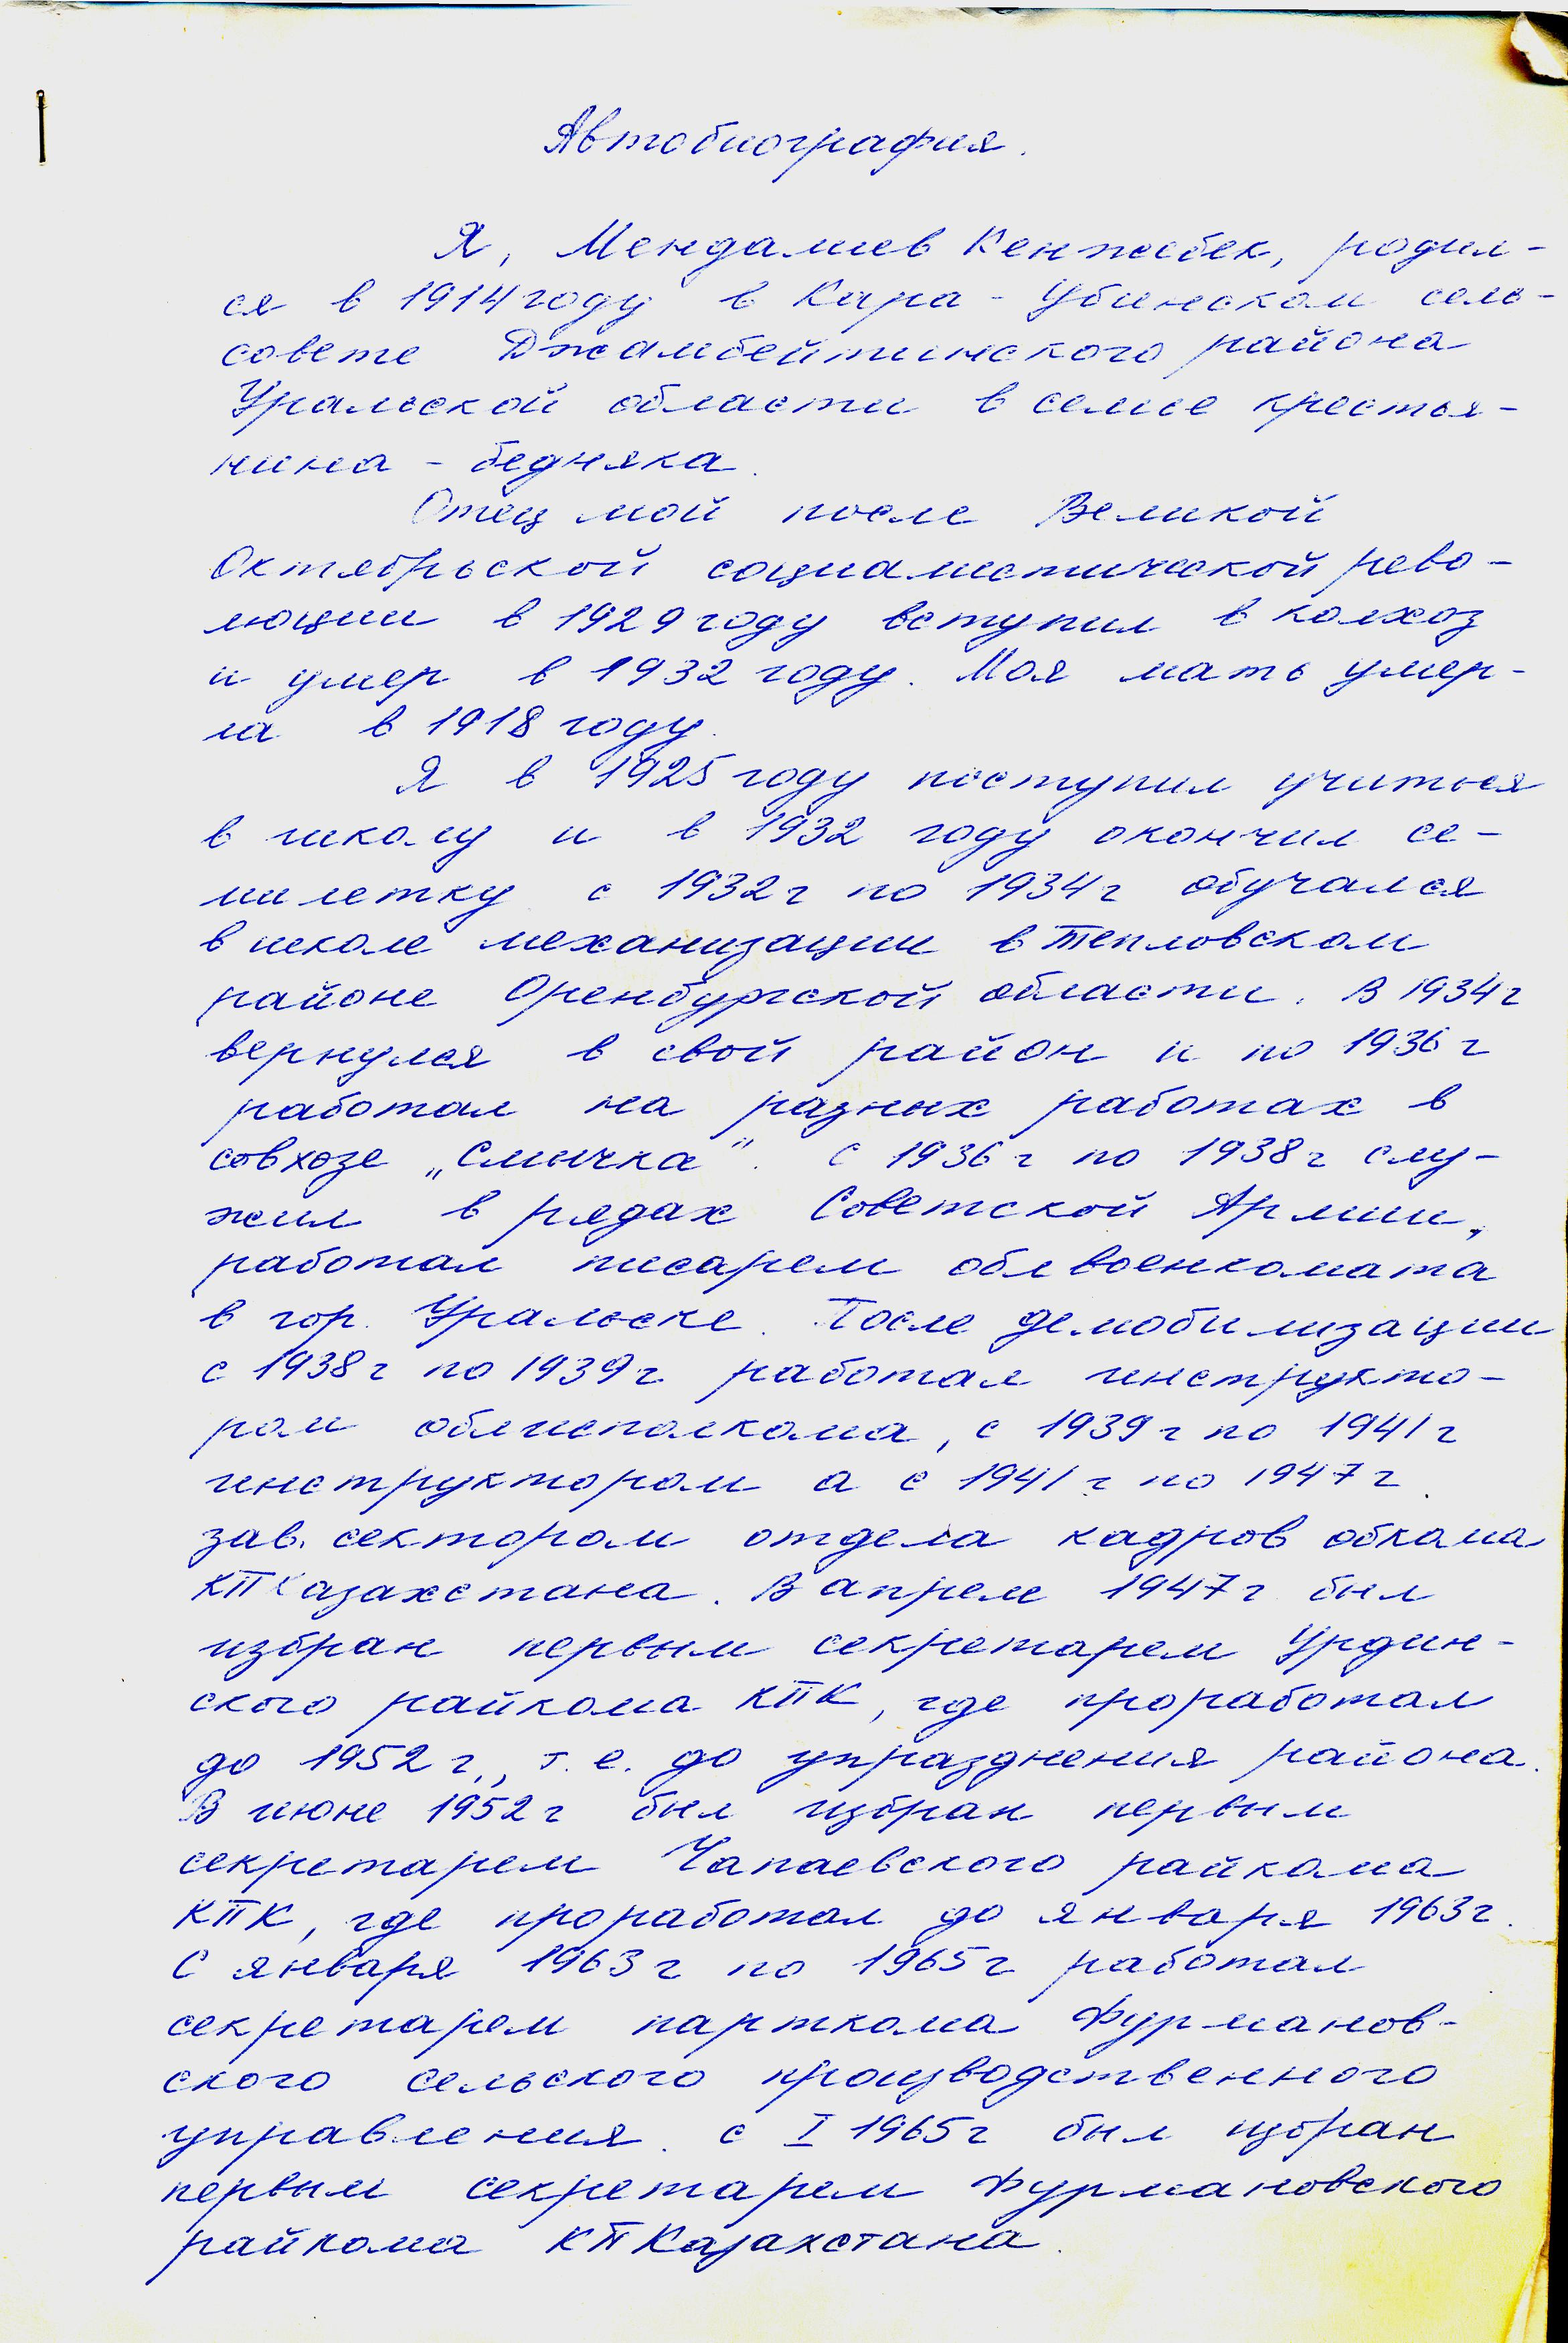 Автобиография.
Я, Мендалиев Кенжебек, родил-
ся в 1914 году в Кара-Убинском сель-
совете Джамбейтинского района
Уральской области в семье крестья-
нина - бедняка.
Отец мой после Великой
Октябрьской социалистической рево-
люции в 1929 году вступил в колхоз
и умер в 1932 году. Моя мать умер-
ла в 1918 году.
Я в 1925 году поступил учиться
в школу и в 1932 году окончил се-
милетку с 1932 г по 1934 г обучался
в школе механизации в Тепловском
районе Оренбургской области. В 1934 г
вернулся в свой район и по 1936 г
работал на разных работах в
совхозе „Смычка". С 1936 г по 1938 г слу-
жил в рядах Советской Армии,
работал писарем облвоенкомата
в гор. Уральске. После демобилизации
с 1938 г по 1939 г. работал инструкто-
ром облисполкома, с 1939 г по 1941 г
инструктором а с 1941 г по 1947 г.
зав. сектором отдела кадров обкома
КПКазахстана. В апреле 1947 г. был
избран первым секретарем Урдин-
ского райкома КПК, где проработал
до 1952 г., т.е. до упразднения района.
В июне 1952 г был избран первым
секретарем Чапаевского райкома
КПК, где проработал до января 1963 г.
С января 1963 г по 1965 г работал
секретарем парткома Фурманов-
ского сельского производственного
управления. с I 1965 г был избран
первым секретарем Фурмановского
райкома КПКазахстана.